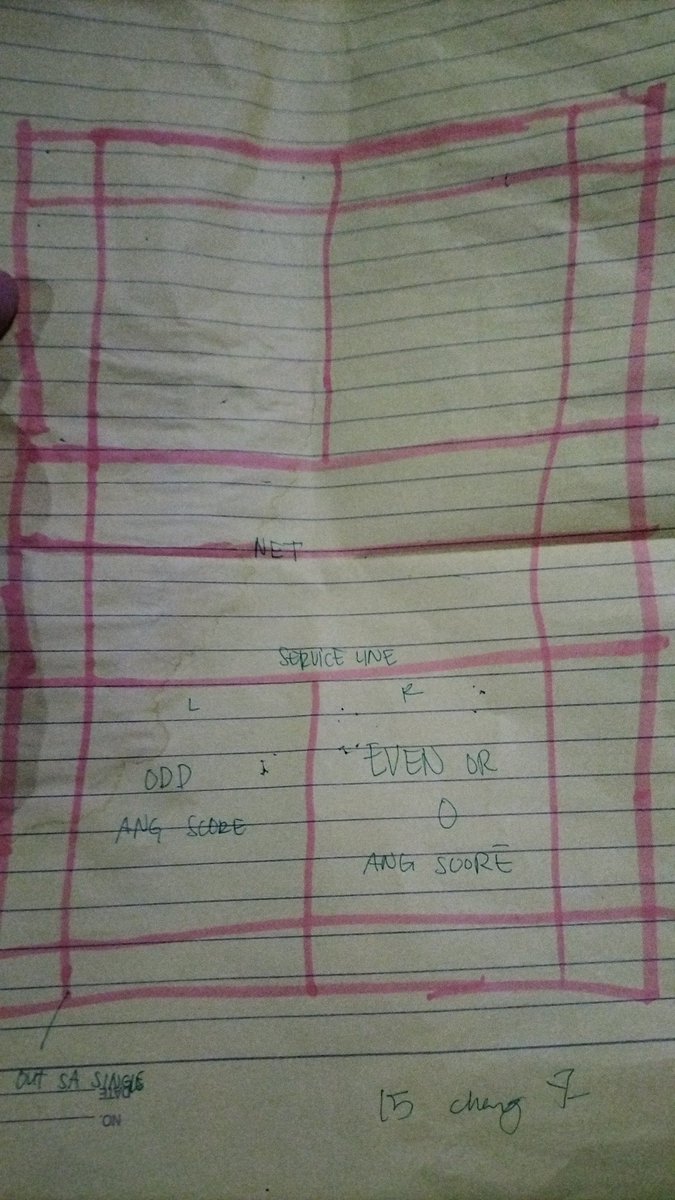 NET
SERVICE LINE
L
R
ODD
ANG SCORE
EVEN OR
0
ANG SCORE
OUT SA SINGLE
DATE
NO.
15 chang